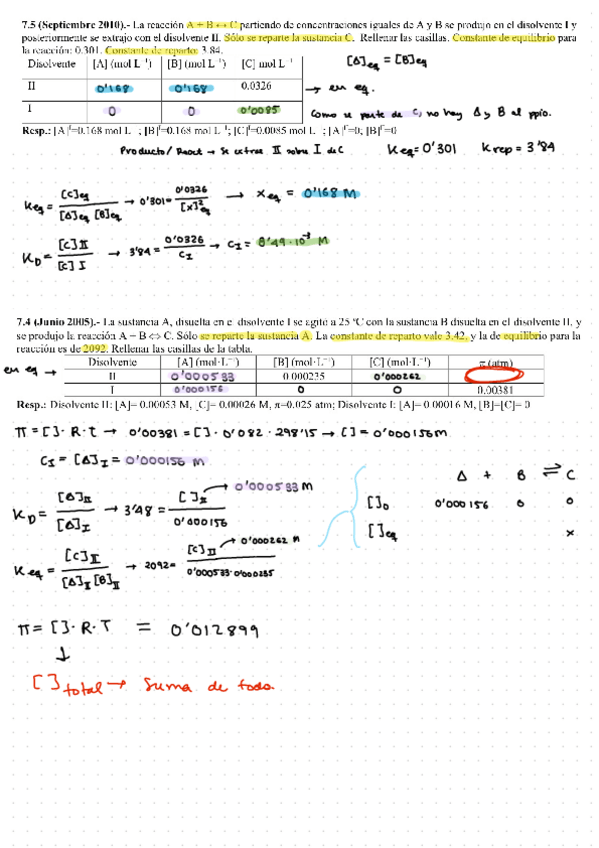 7.5 (Septiembre 2010).- La reacción A + B ↔ C partiendo de concentraciones iguales de A y B se produjo en el disolvente I y
posteriormente se extrajo con el disolvente II. Sólo se reparte la sustancia C. Rellenar las casillas. Constante de equilibrio para
la reacción: 0.301. Constante de reparto: 3.84.
[A]eq = [B]eq
Disolvente [A] (mol L⁻¹) [B] (mol L⁻¹) [C] mol L⁻¹
II 0'168 0'168 0.0326 → en eq.
I 0 0 0'0085 Como se parte de C, no hay A y B al ppio.
Resp.: [A]ᴵ=0.168 mol L⁻¹; [B]ᴵ=0.168 mol L⁻¹; [C]ᴵ=0.0085 mol L⁻¹; [A]ᴵᴵ=0; [B]ᴵᴵ=0
Producto/React → Se extrae II sobre I de C Keq = 0'301 Krep = 3'84
Keq = [C]eq / [A]eq [B]eq → 0'301 = 0'0326 / [x]²eq → xeq = 0'168 M
KD = [C]II / [C]I → 3'84 = 0'0326 / CI → CI = 8'49·10⁻³ M
7.4 (Junio 2005).- La sustancia A, disuelta en el disolvente I se agitó a 25 ºC con la sustancia B disuelta en el disolvente II, y
se produjo la reacción A + B ⇔ C. Sólo se reparte la sustancia A. La constante de reparto vale 3.42, y la de equilibrio para la
reacción es de 2092. Rellenar las casillas de la tabla.
en eq →
Disolvente [A] (mol·L⁻¹) [B] (mol·L⁻¹) [C] (mol·L⁻¹) π (atm)
II 0'000533 0.000235 0'000262
I 0'000156 0 0 0.00381
Resp.: Disolvente II: [A]= 0.00053 M, [C]= 0.00026 M, π=0.025 atm; Disolvente I: [A]= 0.00016 M, [B]=[C]= 0
π = [ ]· R· t → 0'00381 = [ ]· 0'082 · 298'15 → [ ] = 0'000156 M
CI = [A]I = 0'000156 M
KD = [A]II / [A]I → 3'48 = [ ]II / 0'000156 → 0'000533 M
A + B ⇌ C
[ ]0 0'000156 0 0
[ ]eq x
Keq = [C]II / [A]I [B]II → 2092 = [C]II / 0'000533·0'000235 → 0'000262 M
π = [ ]· R· T = 0'012899
↓
[ ]total → Suma de todo.